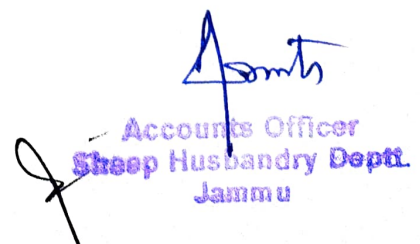 Accounts Officer
Sheep Husbandry Deptt.
Jammu